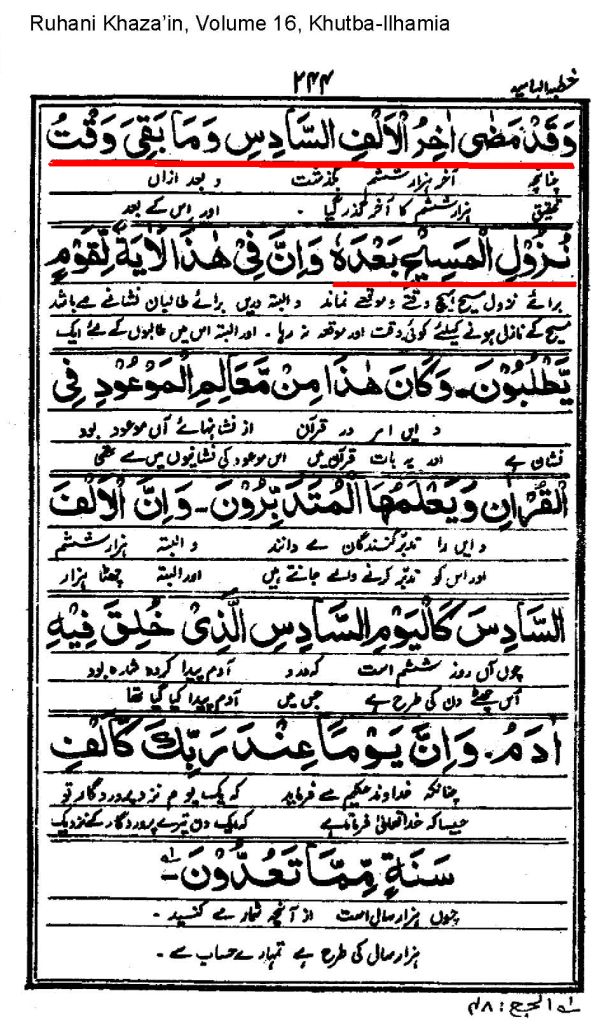 Ruhani Khaza’in, Volume 16, Khutba-Ilhamia
خطبہ الہامیہ
۲۴۴
وَقَدْ مَضٰی اٰخِرُ الْاَلْفِ السَّادِسِ وَمَا بَقِیَ وَقْتُ
چنانچہ آخر ہزار ششم بگذشت و بعد ازاں
تحقیق ہزار ششم کا آخر گذر گیا ۔ اور اس کے بعد
نُزُوْلِ الْمَسِیْحِ بَعْدَہٗ وَاِنَّ فِیْ ھٰذَا لَاٰیَۃً لِّقَوْمٍ
برائے نزول مسیح ہیچ وقتے و موقعے نماند و البتہ دریں برائے طالبان نشانے مے باشد
مسیح کے نازل ہونے کیلئے کوئی وقت اور موقعہ نہ رہا ۔ اور البتہ اس میں طالبوں کے لئے ایک
یَّطْلُبُوْنَ۔ وَکَانَ ھٰذَا مِنْ مَّعَالِمِ الْمَوْعُوْدِ فِی
و ایں امر در قرآن از نشانہائے آں موعود بود
نشان ہے اور یہ بات قرآن میں اس موعود کی نشانیوں میں سے تھی
الْقُرْاٰنِ وَیَعْلَمُھَا الْمُتَدَبِّرُوْنَ۔ وَاِنَّ الْاَلْفَ
و ایں را تدبر کنندگان مے دانند و البتہ ہزار ششم
اور اس کو تدبر کرنے والے جانتے ہیں اور البتہ چھٹا ہزار
السَّادِسَ کَالْیَوْمِ السَّادِسِ الَّذِیْ خُلِقَ فِیْہِ
چوں آں روز ششم است کہ درو آدم پیدا کردہ شدہ بود
اُس چھٹے دن کی طرح ہے جس میں آدم پیدا کیا گیا تھا
اٰدَمُ۔ وَاِنَّ یَوْمًا عِنْدَ رَبِّکَ کَاَلْفِ
چنانکہ خداوند حکیم مے فرماید کہ یک یوم نزد پروردگار تو
جیسا کہ خدا تعالیٰ فرماتا ہے کہ ایک دن تیرے پروردگار کے نزدیک
سَنَۃٍ مِّمَّا تَعُدُّوْنَ ۔
چوں ہزار سال است از آنچہ شمار مے کنید ۔
ہزار سال کی طرح ہے تمہارے حساب سے ۔
الحج : ۴۸